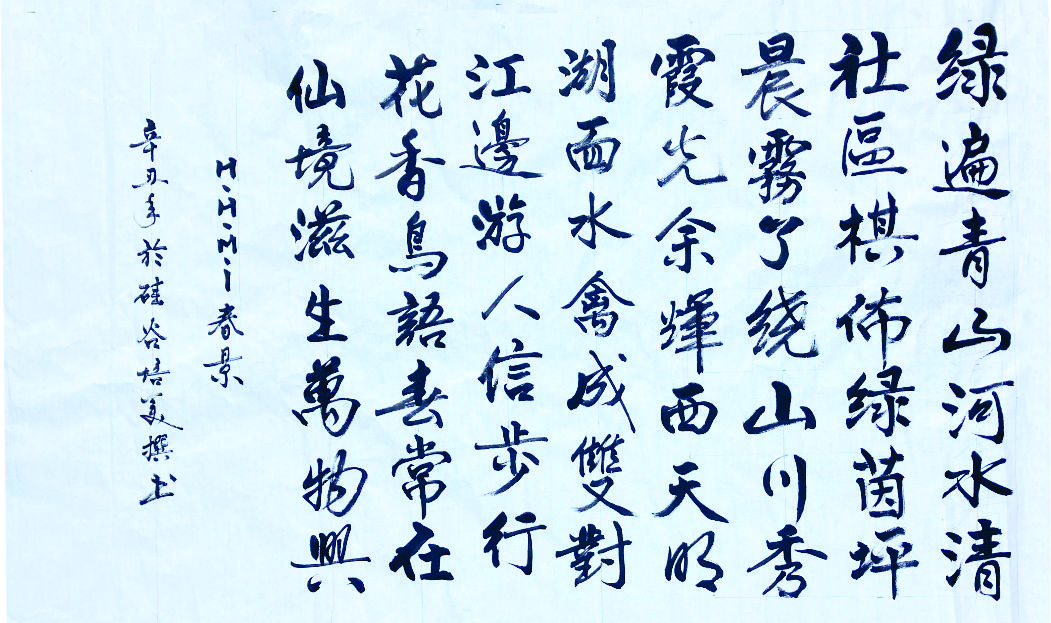 绿遍青山河水清
社區棋佈绿茵坪
晨霧了绕山川秀
霞光余輝西天明
湖面水禽成雙對
江邊游人信步行
花香鳥語春常在
仙境滋生萬物興
H·H·M·I春景
辛丑年於硅谷培美撰书